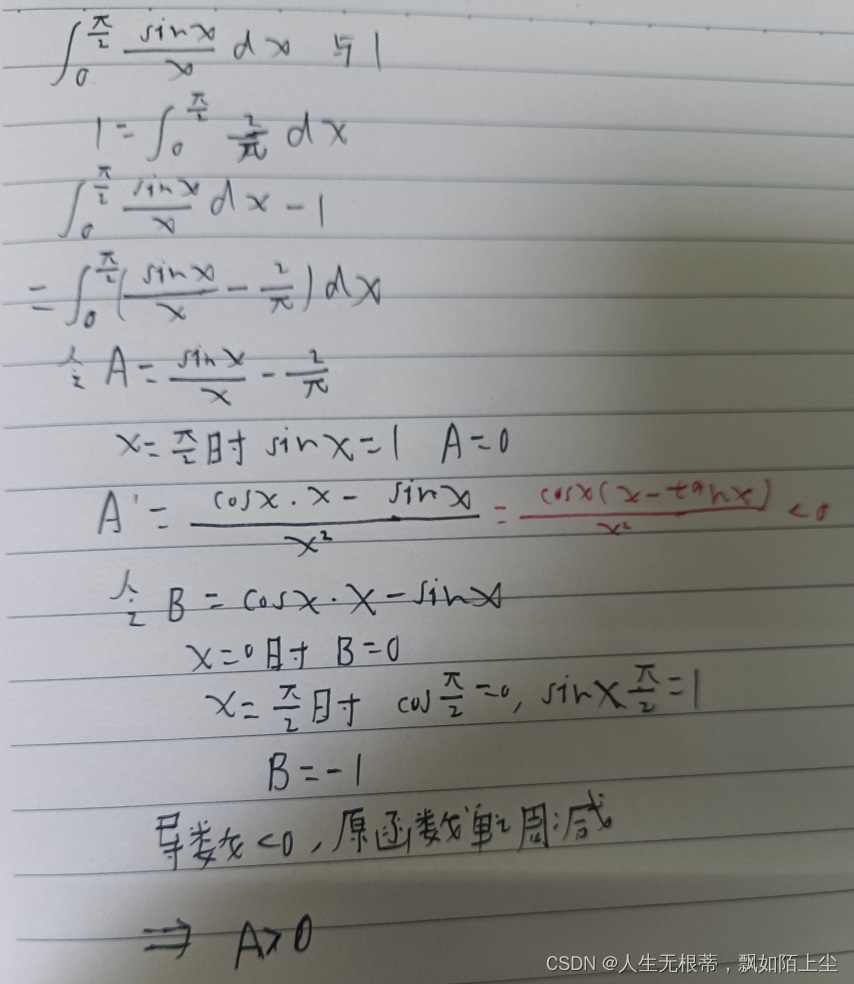 ∫₀^(π/2) sinx/x dx 与 1
1 = ∫₀^(π/2) 2/π dx
∫₀^(π/2) sinx/x dx - 1
= ∫₀^(π/2) (sinx/x - 2/π) dx
令 A = sinx/x - 2/π
x = π/2 时 sinx = 1 A = 0
A' = (cosx · x - sinx)/x² = cosx(x - tanx)/x² < 0
令 B = cosx · x - sinx
x = 0 时 B = 0
x = π/2 时 cos π/2 = 0, sinx π/2 = 1
B = -1
导数 < 0, 原函数单调减
⇒ A > 0
CSDN @人生无根蒂，飘如陌上尘